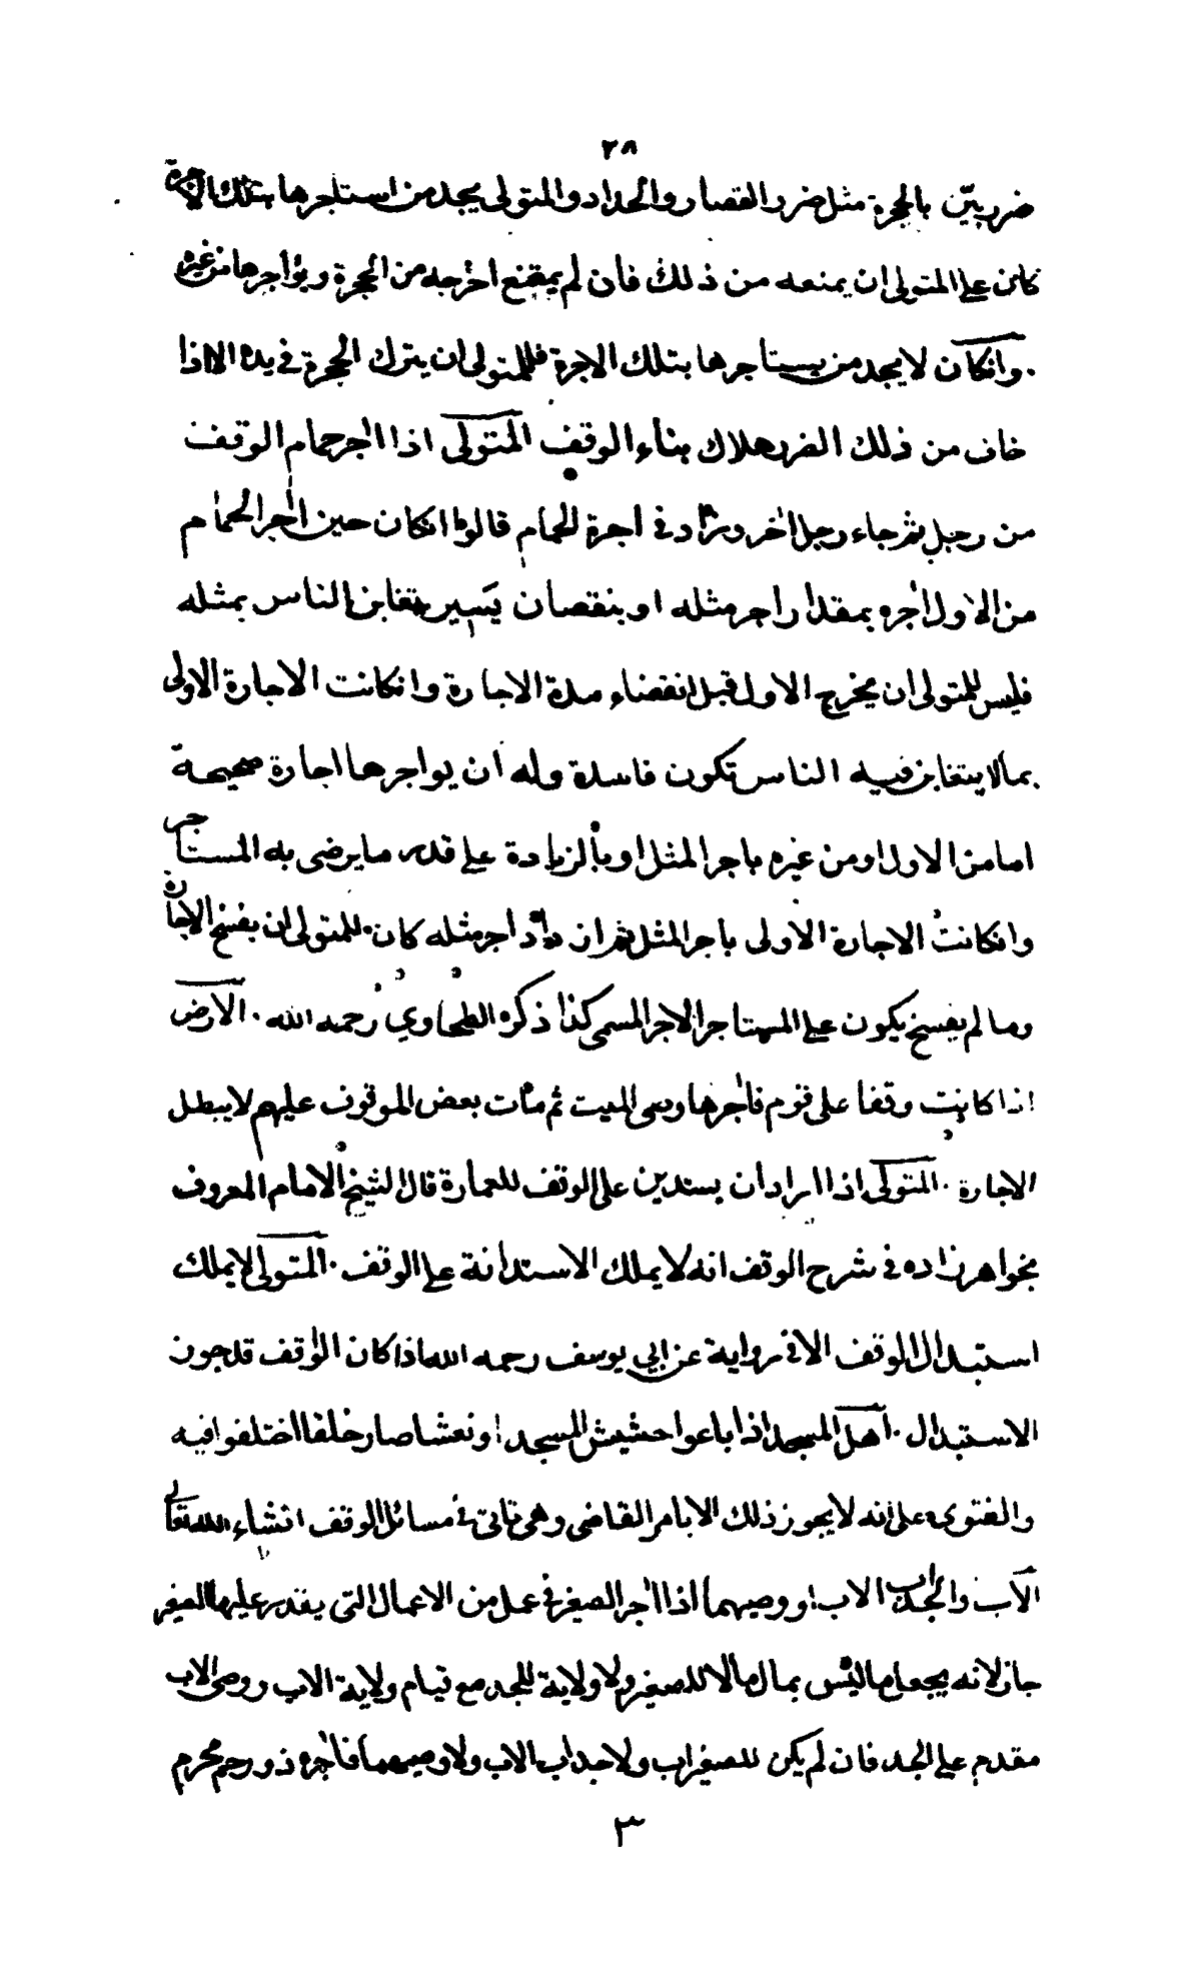 ٢٨
ضرر بيّن بالحجرة مثل ضرر القصار والحداد والمتولى يجد من استاجرها بتلك الاجرة
كان على المتولى ان يمنعه من ذلك فان لم يمتنع اخرجه من الحجرة ويؤاجرها من غيره
وانكان لا يجد من يستاجرها بتلك الاجرة فللمتولى ان يترك الحجرة فى يده الا اذا
خاف من ذلك الضرر هلاك بناء الوقف المتولى اذا اٰجر حمام الوقف
من رجل ثم جاء رجل اٰخر وزاد فى اجرة الحمام قالوا انكان حين اٰجر الحمام
من الاول اٰجره بمقدار اجر مثله او بنقصان يَسير يتغابن الناس بمثله
فليس للمتولى ان يخرج الاول قبل انقضاء مدة الاجارة وانكانت الاجارة الاولى
بما لا يتغابن فيه الناس تكون فاسدة وله ان يواجرها اجارة صحيحة
اما من الاول او من غيره باجر المثل او بالزيادة على قدر ما يرضى به المستاجر
وانكانت الاجارة الاولى باجر المثل ثم ازداد اجر مثله كان للمتولى ان يفسخ الاجارة
وما لم يفسخ يكون على المستاجر الاجر المسمى كذا ذكره الطحاوي رحمه الله . الارض
اذا كانت وقفا على قوم فاٰجرها وصى الميت ثم مات بعض الموقوف عليهم لا يبطل
الاجارة . المتولى اذا اراد ان يستدين على الوقف للعمارة قال الشيخ الامام المعروف
بخواهر زاده فى شرح الوقف انه لا يملك الاستدانة على الوقف . المتولى لا يملك
استبدال الوقف الا فى رواية عن ابي يوسف رحمه الله اذا كان الواقف قد جوز
الاستبدال . اهل المسجد اذا باعوا حشيش المسجد او نعشا صار خلقا اختلفوا فيه
والفتوى على انه لا يجوز ذلك الا بامر القاضى وهى تاتى فى مسائل الوقف انشاء الله تعالى
الاب والجد اب الاب او وصيهما اذا اٰجر الصغير فى عمل من الاعمال التى يقدر عليها الصغير
جاز لانه يجعل ما ليس بمال مالا للصغير ولا ولاية للجد مع قيام ولاية الاب ووصى الاب
مقدم على الجد فان لم يكن للصغير اب ولا جد اب الاب ولا وصيهما فاٰجره ذو رحم محرم
٣